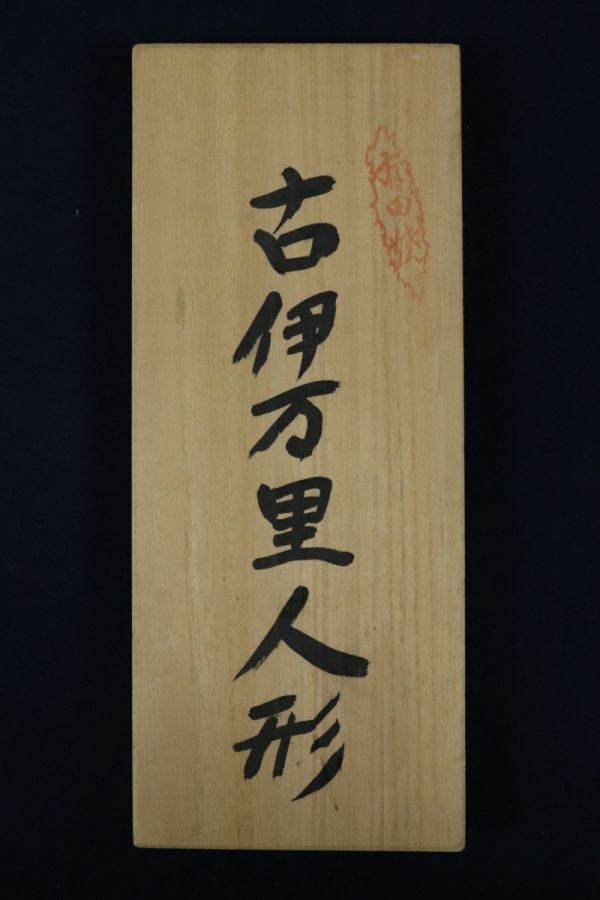 古伊万里人形